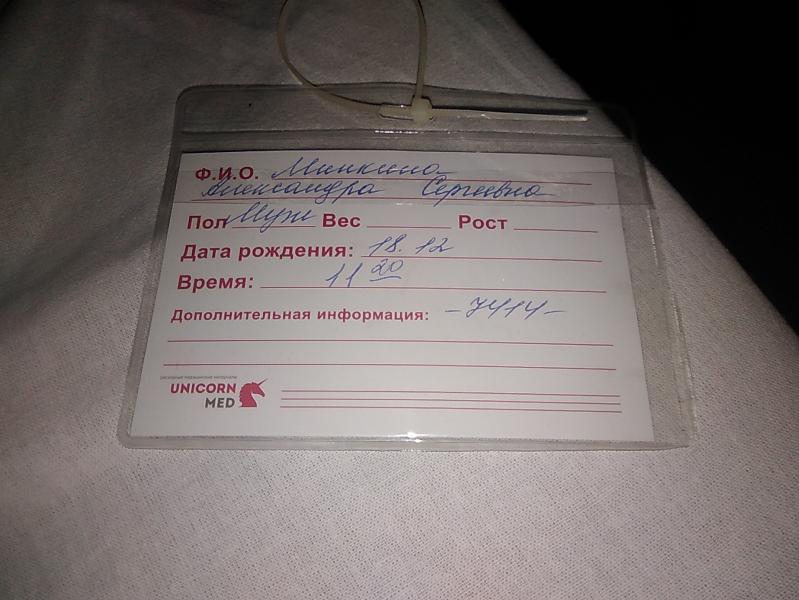 Ф.И.О. Минкина
Александра Сергеевна
Пол Муж Вес Рост
Дата рождения: 18.12
Время: 11 20
Дополнительная информация: -7414-
расходные медицинские материалы
UNICORN
MED